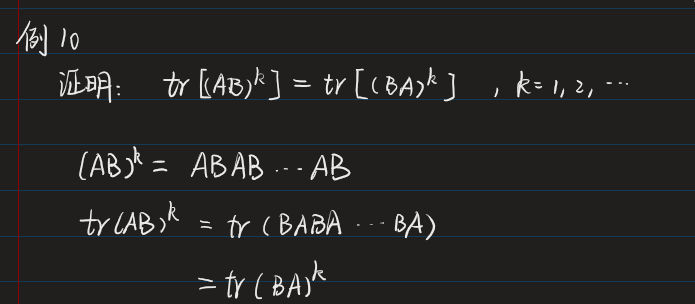 例10
证明: tr[(AB)^k] = tr[(BA)^k] , k=1,2,…
(AB)^k = ABAB…AB
tr(AB)^k = tr(BABA…BA)
= tr(BA)^k